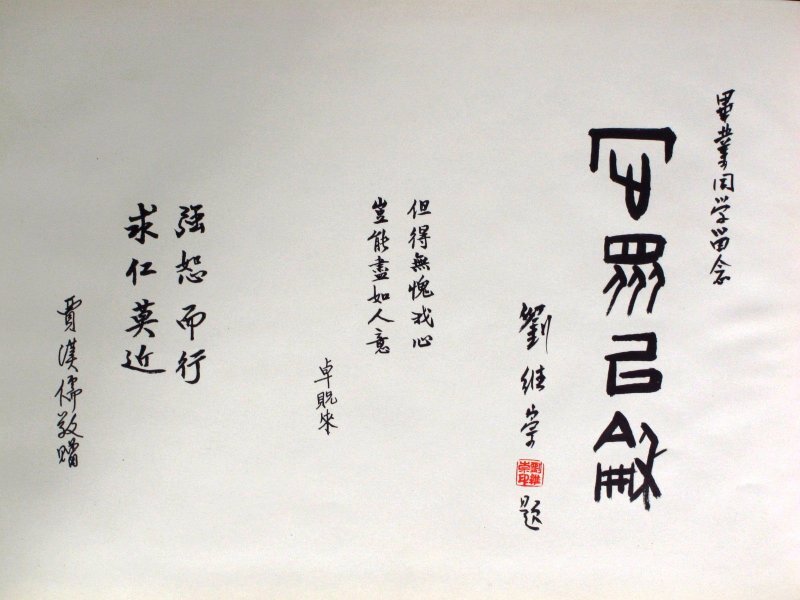 畢業同学留念
眾己
劉維崇
題
但得無愧我心
豈能盡如人意
卓貺來
強恕而行
求仁莫近
賈漢儒敬贈